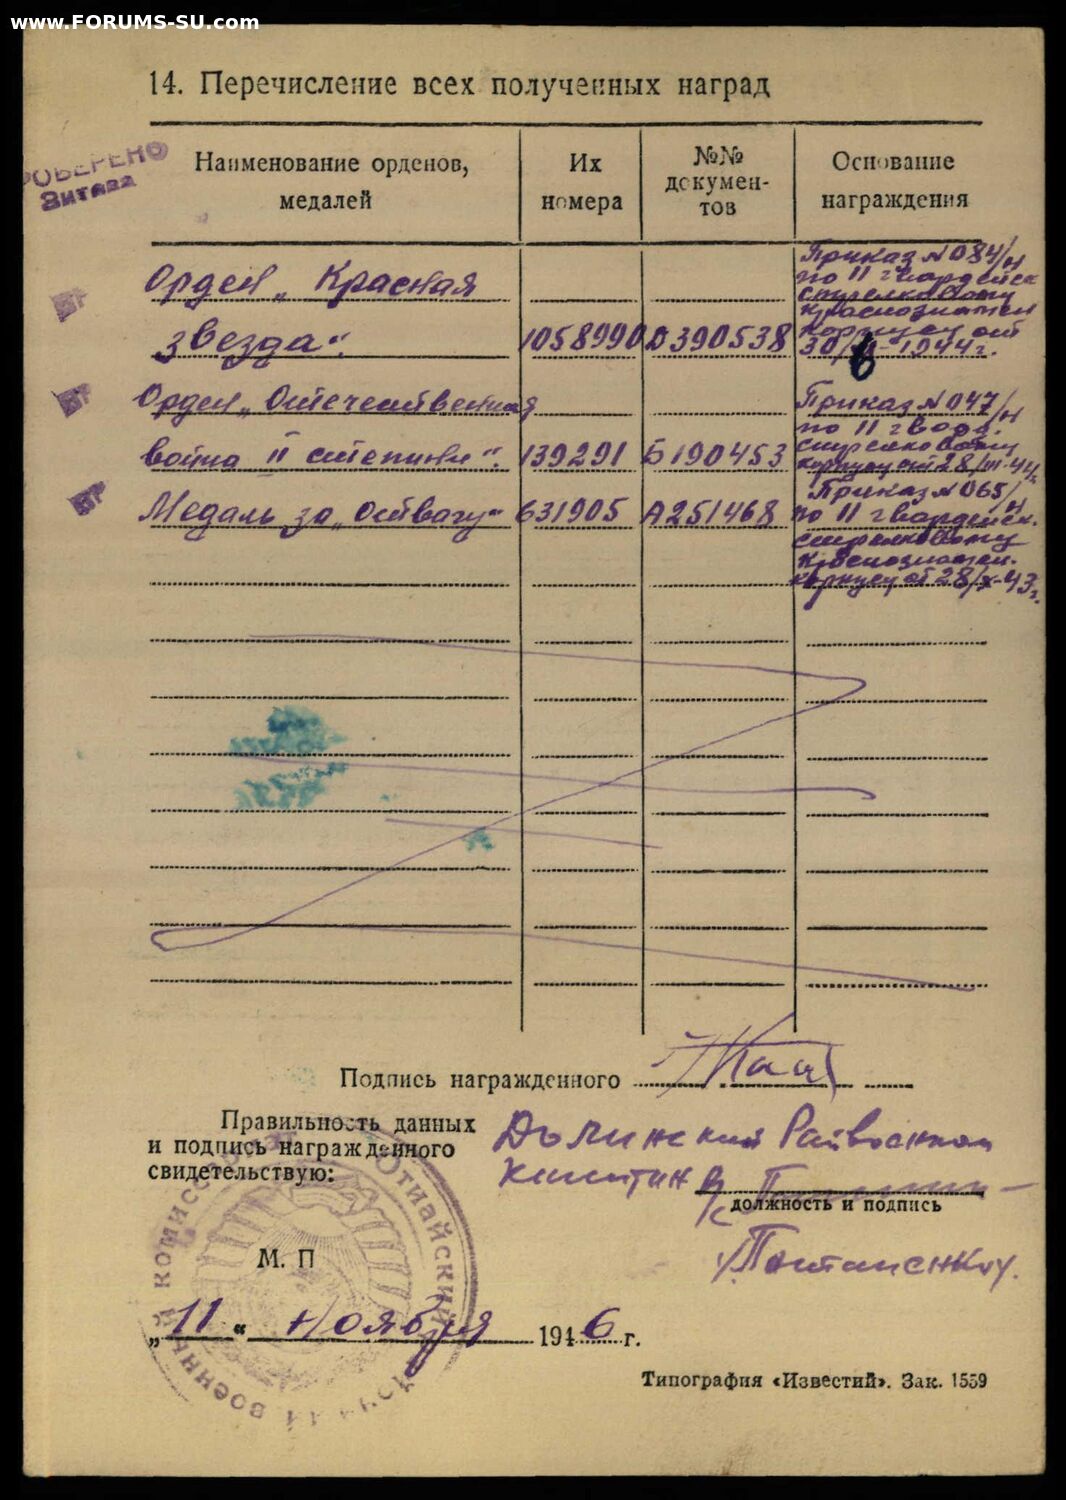 www.FORUMS-SU.com
14. Перечисление всех полученных наград
Наименование орденов,
медалей
Их
номера
№№
докумен-
тов
Основание
награждения
Орден „Красная
звезда“.
1058990
О390538
Приказ № 084/н
по 11 гвардейск
стрелковому
краснознамен
корпусу от
30/ 1944г.
Орден „Отечественная
война II степини“.
139291
Б190453
Приказ № 047/н
по 11 гвард.
стрелковому
корпусу от 28/III-44
Медаль за „Отвагу“
631905
А251468
Приказ № 065/н
по 11 гвардейск.
стрелковому
Краснознамен.
корпусу от 28/X-43г.
Подпись награжденного
Правильность данных
и подпись награжденного
свидетельствую:
Долинский Райвоенком
должность и подпись
М. П
„11“ Ноября 1946 г.
Типография «Известий». Зак. 1559